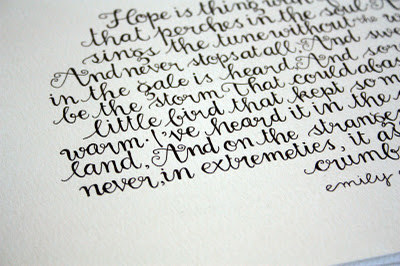 Hope is thing with
that perches in the soul
sings the tune without the
And never stops at all. And
in the gale is heard. And
be the storm That could abas
little bird that kept so m
warm. I've heard it in the
land, And on the strange
never, in extremeties, it as
crumb
emily